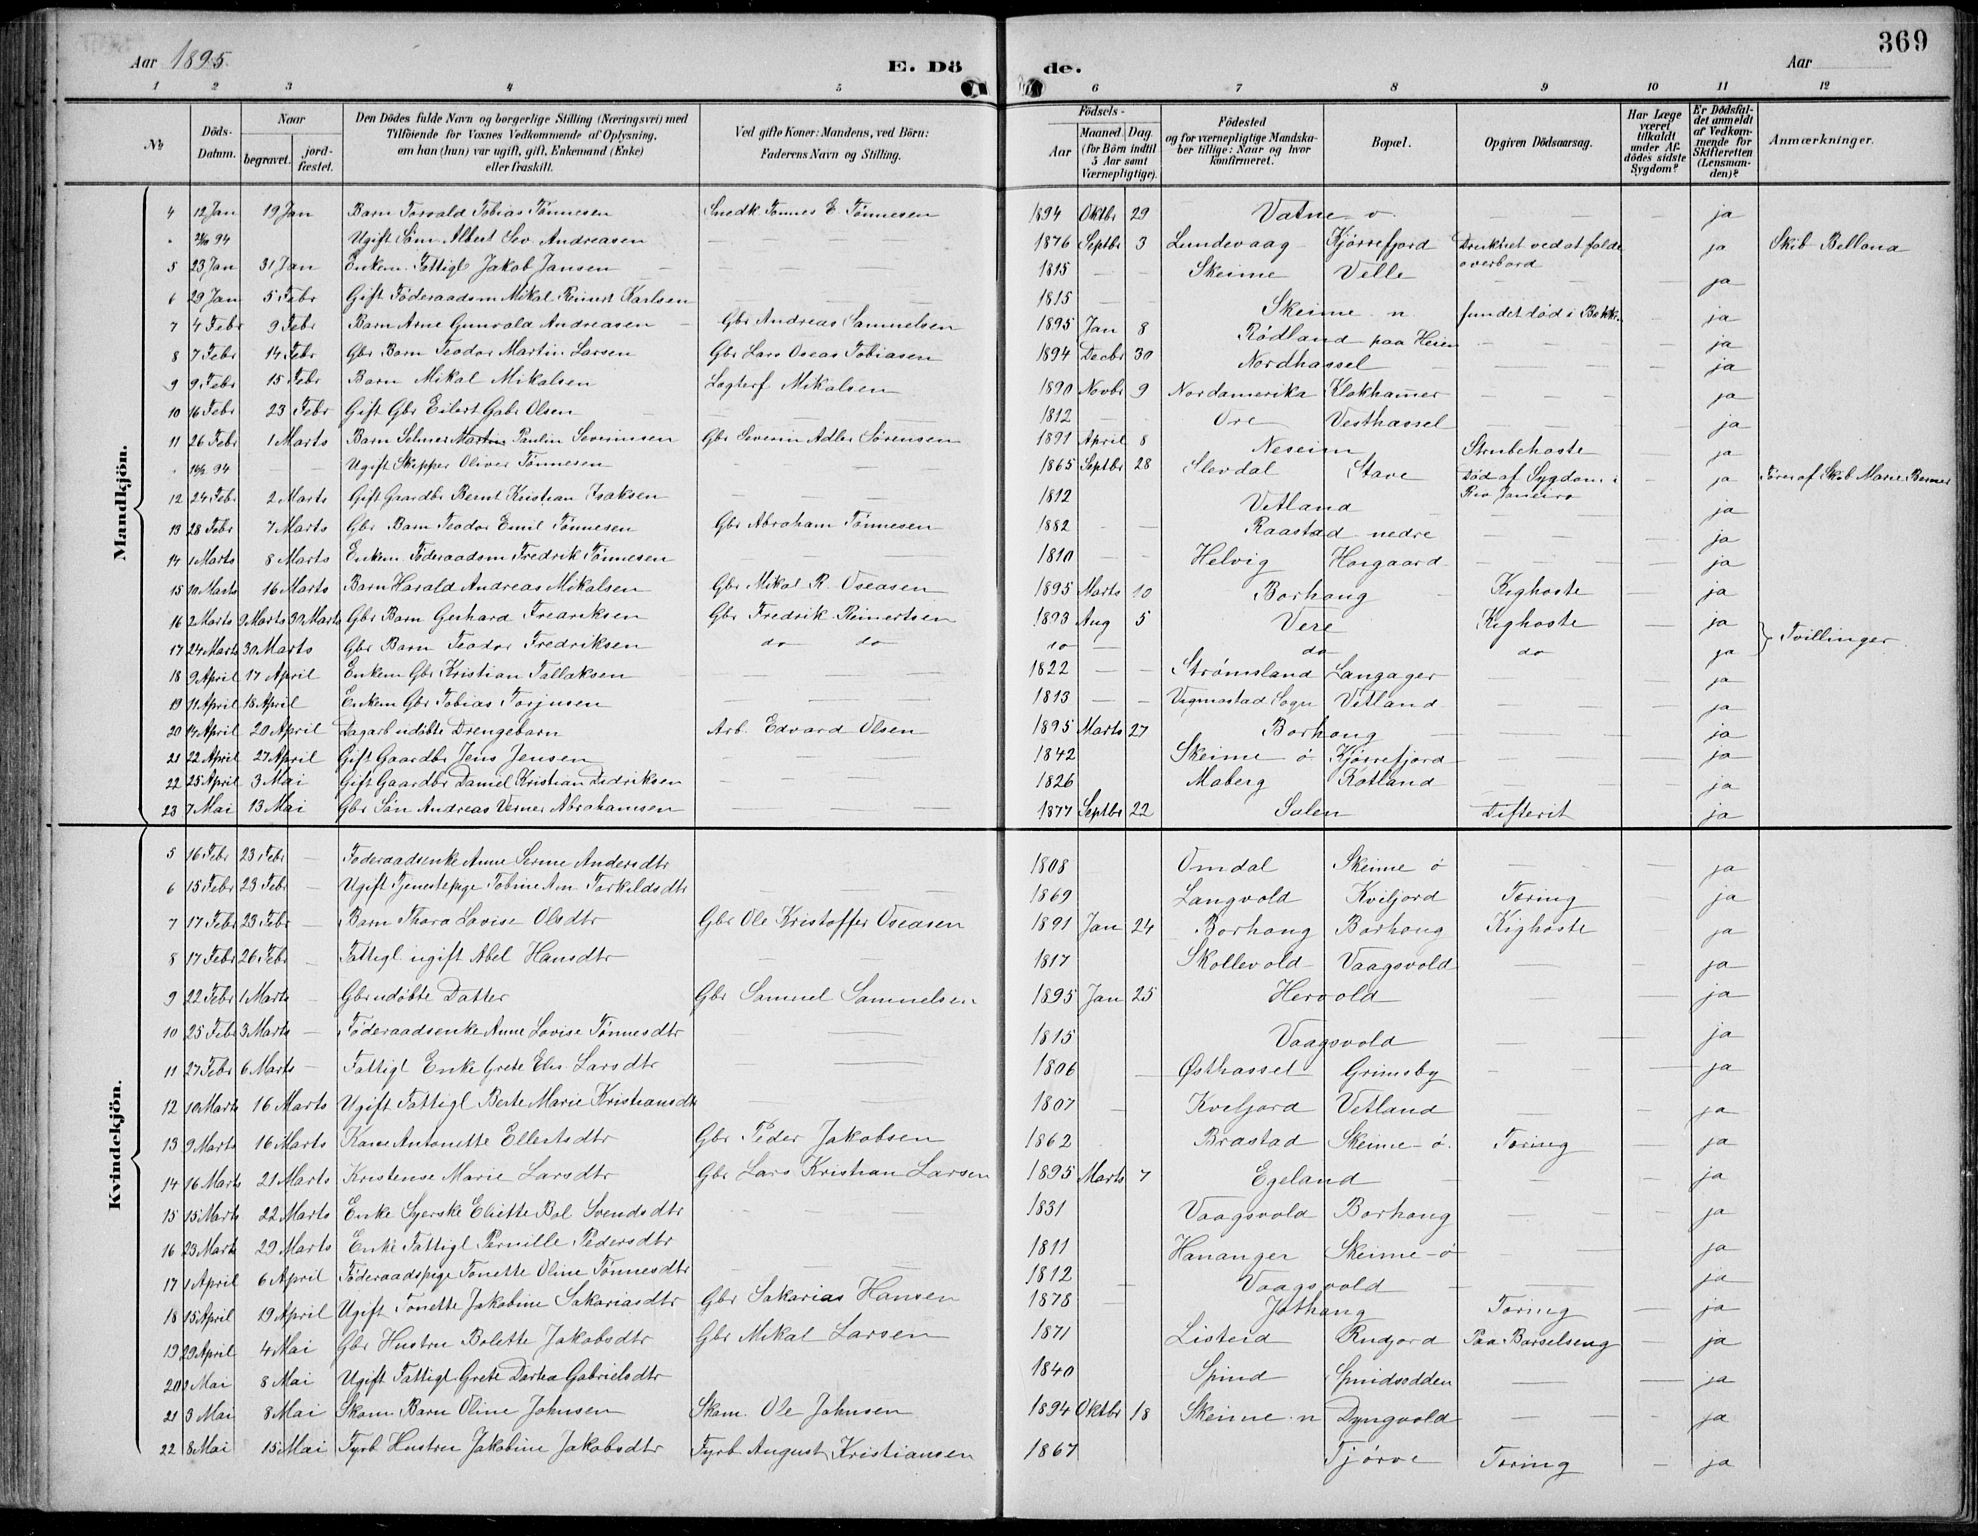 369
Aar 1895. E. Dö de. Aar
1 2 3 4 5 6 7 8 9 10 11 12
№ Döds-Datum. Naar begravet. jordfæstet. Den Dödes fulde Navn og borgerlige Stilling (Næringsvei) med Tilföiende for Voxnes Vedkommende af Oplysning, om han (hun) var ugift, gift, Enkemand (Enke) eller fraskilt. Ved gifte Koner: Mandens, ved Börn: Faderens Navn og Stilling. Födsels- Aar Maaned. Dag. (for Börn indtil 5 Aar samt Værnepligtige). Födested og for værnepligtige Mandskaber tillige: Naar og hvor konfirmeret. Bopæl. Opgiven Dödsaarsag. Har Læge været tilkaldt under Afdödes sidste Sygdom? Er Dödsfaldet anmeldt af Vedkommende for Skifteretten (Lensmanden)? Anmærkninger.
Mandkjön.
4 12 Jan 19 Jan Barn Torvald Tobias Tönnesen Snedk Tönnes E Tönnesen 1894 Oktbr 29 Vatne v. — — ja
94 Ugift Sön Albert Sev. Andreasen — — 1876 Septbr 3 Lundevaag Kjørrefjord Druknet ved at falde overbord ja Skib Bellona
5 23 Jan 31 Jan Enkem. Fattigl Jakob Jansen — — 1815 — — Skeime Velle ja
6 29 Jan 5 Febr Gift Föderaadsm Mikal Reinert Karlsen 1815 — Skeime n fundet død i ja
7 4 Febr 9 Febr Barn Arne Gunvald Andreasen — Gbr Andreas Samuelsen 1895 Jan 8 Rødland paa Heien — — ja
8 7 Febr 14 Febr Gbr Barn Teodor Martin Larsen Gbr Lars Oseas Tobiasen 1894 Decbr 30 Nordhassel — — ja
9 9 Febr 15 Febr Barn Mikal Mikalsen Mikalsen 1890 Novbr 9 Nordamerika Klokhamer — — ja
10 16 Febr 23 Febr Gift Gbr Eilert Gabr Olsen — — 1812 — Ore Vesthassel ja
11 26 Febr 1 Marts Barn Selmer Martin Paulin Severinsen Gbr Severin Adler Sørensen 1891 April 8 Neseim Strubehoste ja
94 — — Ugift Skipper Oliver Tönnesen — — 1865 Septbr 28 Slevdal Stave Død af Sygdom i Rio Janeiro ja Fører af Skib Marie
12 24 Febr 2 Marts Gift Gaardbr Bernt Kristian Isaksen — — 1812 Vetland ja
13 28 Febr 7 Marts Gbr Barn Teodor Emil Tönnesen Gbr Abraham Tönnesen 1882 — — Raastad nedre ja
14 1 Marts 8 Marts Enkem Föderaadsm Fredrik Tönnesen 1810 — — Helvig Horgaard — — ja
15 10 Marts 16 Marts Barn Harald Andreas Mikalsen Gbr Mikal R. Oseasen 1895 Marts 10 Borhaug Kighoste — ja
16 2 Marts 9 Marts 30 Marts Gbr Barn Gerhard Fredriksen Gbr Fredrik Reinertsen 1893 Aug 5 Vere Kighoste — ja
17 24 Marts 30 Marts Gbr Barn Teodor Fredriksen do do do — do do ja } Tvillinger
18 9 April 17 April Enkem Gbr Kristian Tallaksen 1822 — — Strømsland Langager — ja
19 11 April 18 April Enkem Gbr Tobias Torjusen — — 1813 — — Vigmostad Sogn Vetland — ja
20 14 April 20 April Dagarb udøbte Drengebarn Arb. Edvard Olsen 1895 Marts 27 Borhaug — ja
21 22 April 27 April Gift Gaardbr Jens Jensen — — 1842 Skeime ø Kjørrefjord ja
22 25 April 3 Mai Gift Gaardbr Daniel Kristian Didriksen 1826 Maberg Røtland ja
23 7 Mai 13 Mai Gbr Søn Andreas Verner Abrahamsen — — 1877 Septbr 22 Salen Difterit — ja
Kvindekjön.
5 16 Febr 23 Febr — Föderaadsenke Anne Serine Andersdtr 1808 Omdal Skeime ø — — ja
6 15 Febr 23 Febr — Ugift Tjenestepige Tobine Am Torkildsdtr — — 1869 Langvold Kviljord Tæring ja
7 17 Febr 23 Febr — Barn Thora Lovise Olsdtr Gbr Ole Kristoffer Oseasen 1891 Jan 24 Borhaug Borhaug Kighoste — ja
8 17 Febr 26 Febr — Fattigl ugift Abel Hansdtr — 1817 Skollevold Vaagsvold — ja
9 22 Febr 1 Marts — Gbr udøbte Datter Gbr Samuel Samuelsen 1895 Jan 25 Hervold — ja
10 25 Febr 3 Marts — Föderaadsenke Anne Lovise Tönnesdtr — 1815 Vaagsvold — — ja
11 27 Febr 6 Marts — Fattigl Enke Grete Elis Larsdtr — 1806 — Østhassel Grimsby — — ja
12 10 Marts 16 Marts Ugift Fattigl Berte Marie Kristiansdtr — 1807 — Kviljord Vetland — — ja
13 9 Marts 16 Marts Kone Antonette Ellertsdtr Gbr Peder Jakobsen 1862 Brastad Skeime ø. Tæring — ja
14 16 Marts 21 Marts Kristense Marie Larsdtr Gbr Lars Kristian Larsen 1895 Marts 7 Egeland — — ja
15 15 Marts 22 Marts Enke Syerske Eliette Bol Svendsdtr — 1831 Vaagsvold Borhaug — — ja
16 23 Marts 29 Marts Enke Fattigl Pernille Pedersdtr 1811 Hananger Skeime ø — — ja
17 1 April 6 April Föderaadspige Tonette Oline Tönnesdtr — — 1812 — Vaagsvold — — ja
18 15 April 19 April Ugift Tonette Jakobine Sakariasdtr Gbr Sakarias Hansen 1878 — Jøthaug Tæring — ja
19 29 April 4 Mai Gbr Hustru Bolette Jakobsdtr Gbr Mikal Larsen 1871 Listeid Rudjord Paa Barselseng — ja
20 1 Mai 8 Mai Ugift Fattigl Grete Dortea Gabrielsdtr 1840 Spind Spindsodden — — ja
21 3 Mai 8 Mai Skom. Barn Oline Johnsen Skom. Ole Johnsen 1894 Oktbr 18 Skeime n Dyngvold — — ja
22 8 Mai 15 Mai Fyrb Hustru Jakobine Jakobsdtr Fyrb August Kristiansen 1867 Tjørve Tæring — ja